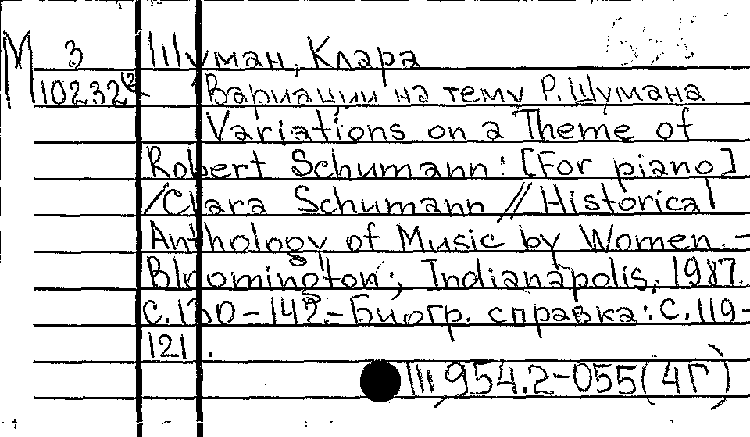 М 3 Шуман, Клара
10232 Вариации на тему Р. Шумана
Variations on a Theme of
Robert Schumann: [For piano]
/Clara Schumann // Historical
Anthology of Music by Women. -
Bloomington; Indianapolis, 1987.
С. 130-142.- Биогр. справка: С. 119-
121.
Ш954.2-055(4Г)